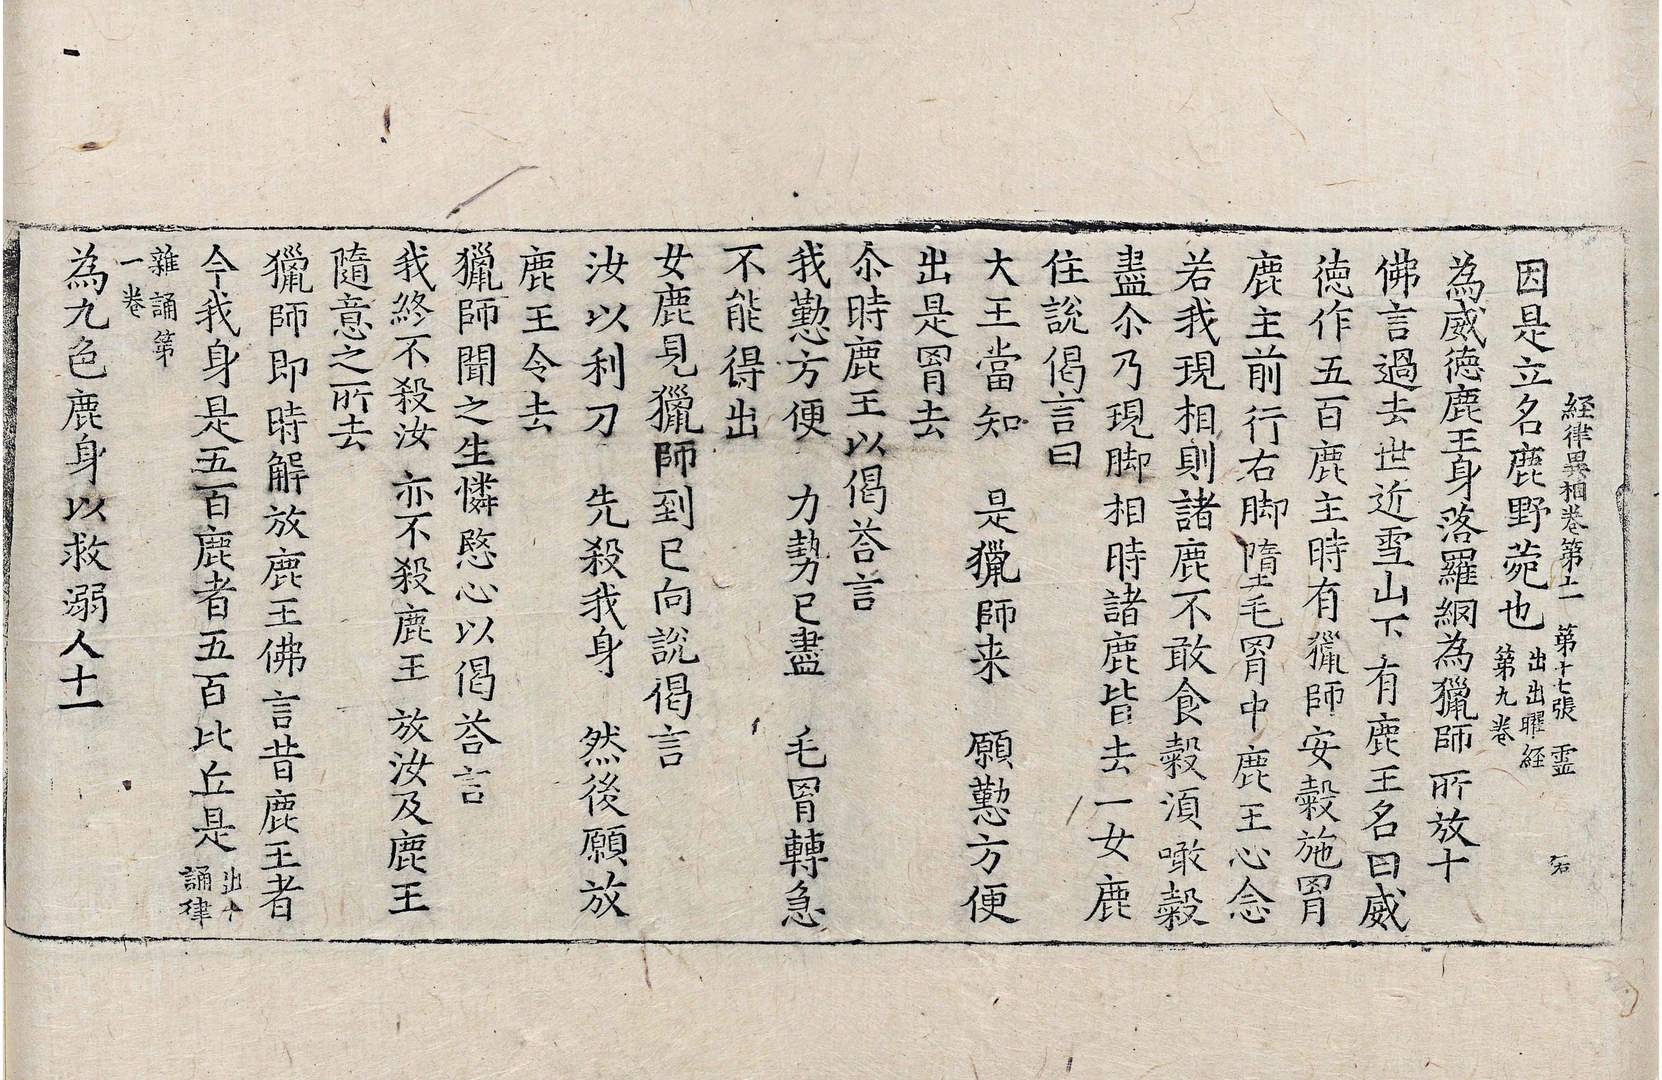 経律異相卷第十一 第十七張 靈
因是立名鹿野苑也 出出曜経第九卷
為威德鹿王身落羅網為獵師所放十
佛言過去世近雪山下有鹿王名曰威
徳作五百鹿主時有獵師安穀施罥
鹿主前行右脚墮毛罥中鹿王心念
若我現相則諸鹿不敢食穀湏噉穀
盡尒乃現脚相時諸鹿皆去一女鹿
住說偈言曰
大王當知 是獵師来 願懃方便
出是罥去
尒時鹿王以偈荅言
我懃方便 力勢已盡 毛罥轉急
不能得出
女鹿見獵師到已向說偈言
汝以利刀 先殺我身 然後願放
鹿王令去
獵師聞之生憐愍心以偈荅言
我終不殺汝 亦不殺鹿王 放汝及鹿王
隨意之所去
獵師即時解放鹿王佛言昔鹿王者
今我身是五百鹿者五百比丘是 出十誦律
雜誦第一卷
為九色鹿身以救溺人十一